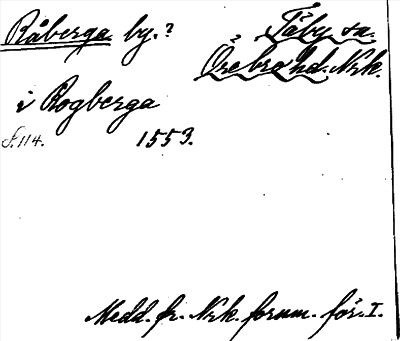 Råberga by.?
Täby sn.
Örebro hd. Nrk.
i Rogberga
s. 114.
1553.
Medd. fr. Nrk. fornm. för. I.